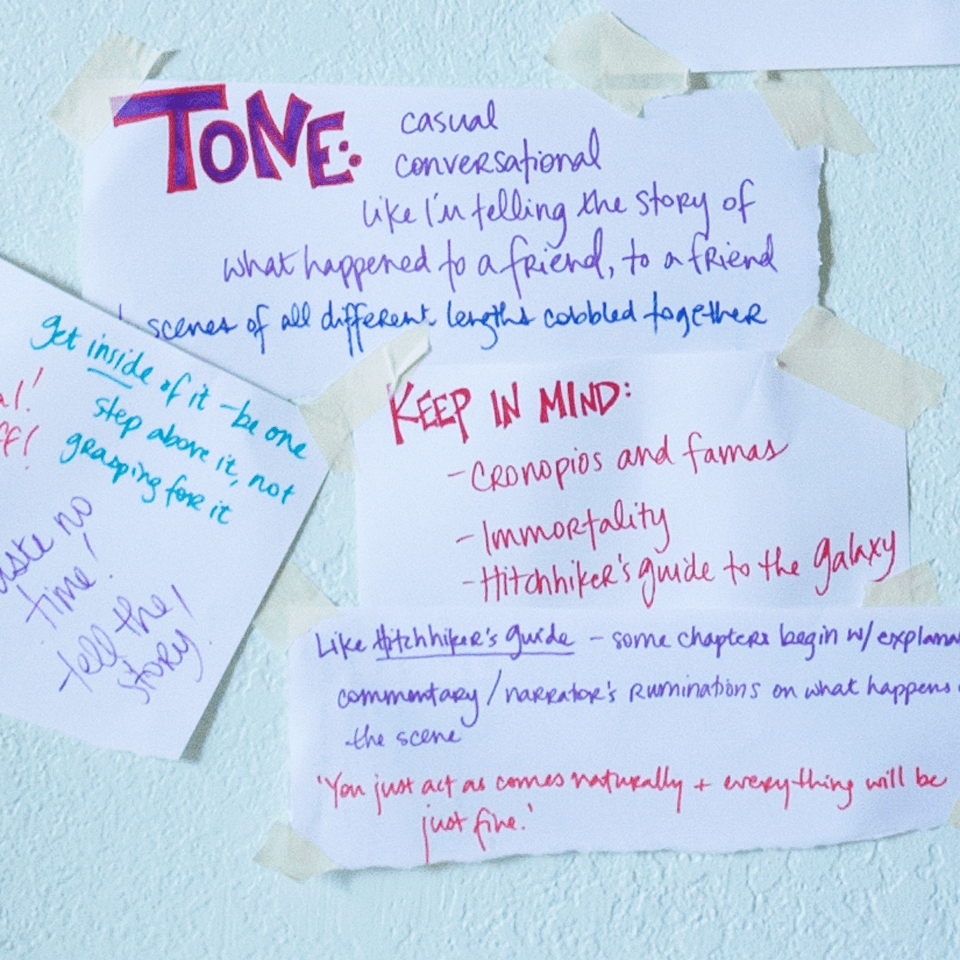 TONE: casual
conversational
like I'm telling the story of
what happened to a friend, to a friend
scenes of all different lengths cobbled together
get inside of it - be one
step above it, not
grasping for it
no
time!
tell the
story!
KEEP IN MIND:
- Cronopios and famas
- Immortality
- Hitchhiker's guide to the galaxy
Like Hitchhiker's guide - some chapters begin w/
commentary / narrator's ruminations on what happens
the scene
'You just act as comes naturally + everything will be
just fine.'